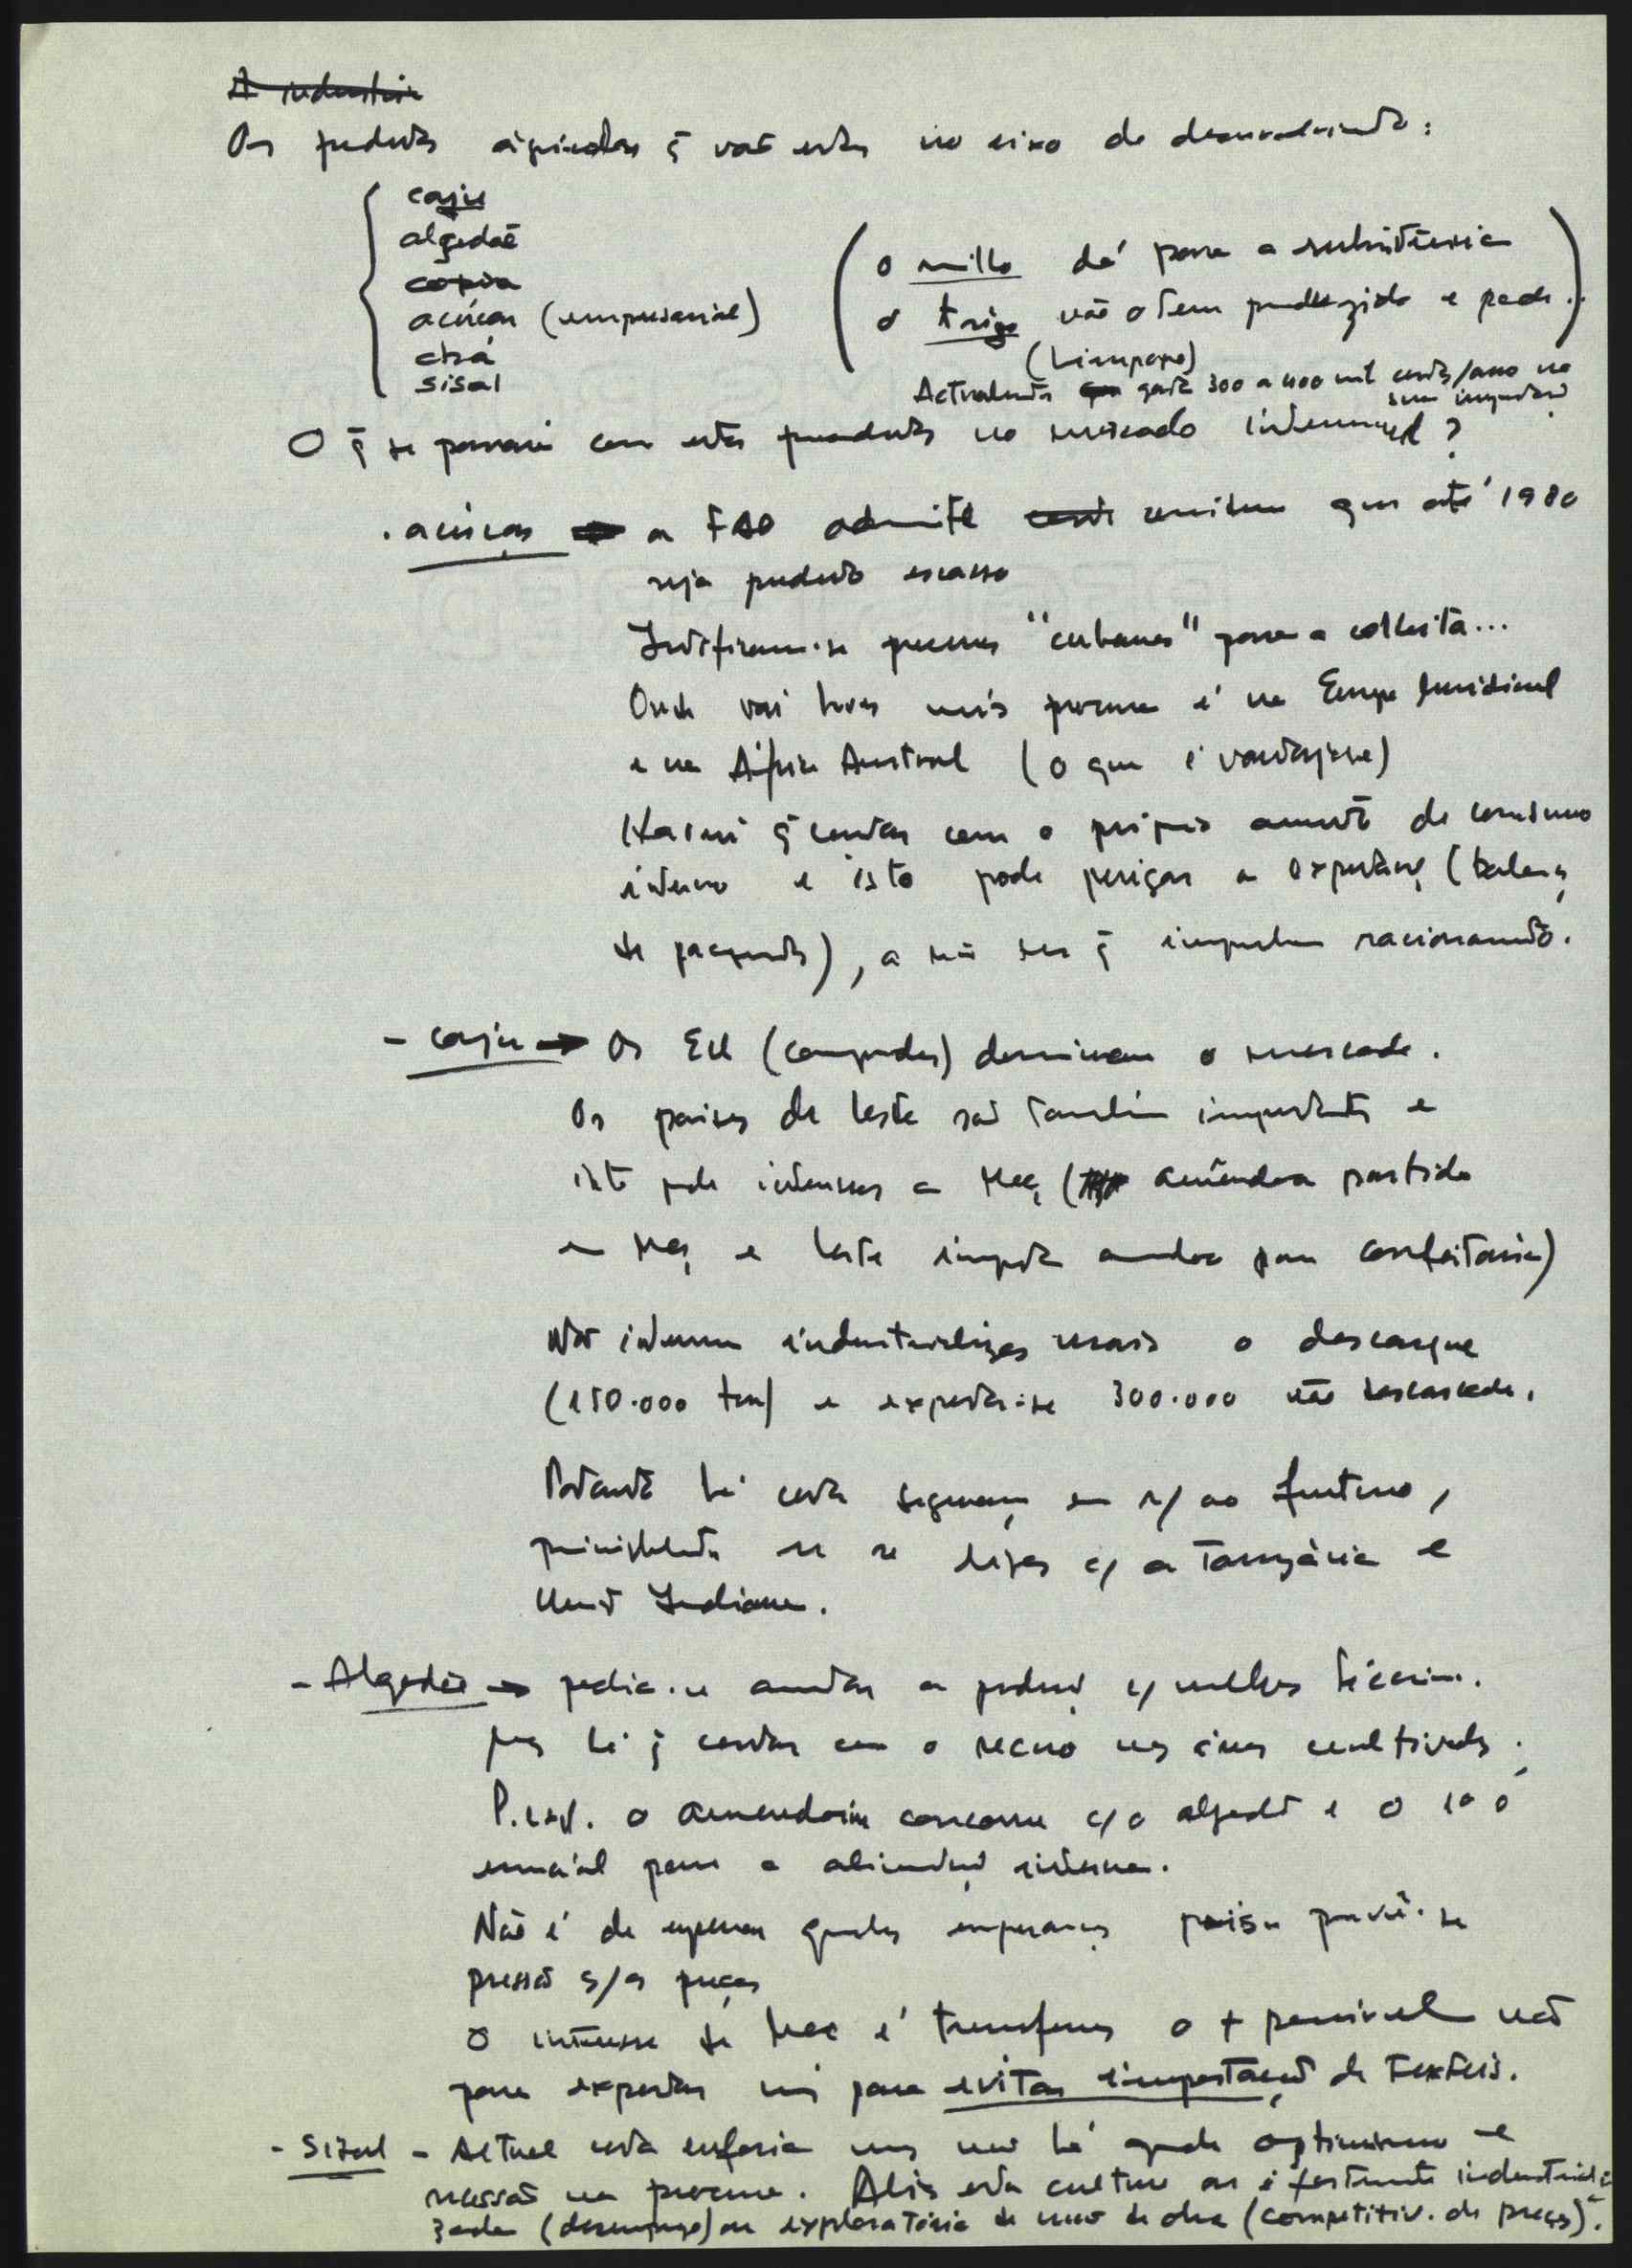 A industria
Os produtos agricolas q̃ vão estar no eixo do desenvolvimento:
caju
algodão
copra
açúcar (empresarial)
chá
sisal
(o milho dá para a subsistencia
o trigo não o tem produzido e pode..)
(Limpopo)
Actualmente gasta 300 a 400 mil contos/ano na
sua importação
O q̃ se passará com estes produtos no mercado internacional?
. açúcar → a FAO admite que até 1980
seja produto escasso
"cubanos" para a colheita...
Onde vai haver mais procura é na Europa Meridional
e na África Austral (o que é vantajoso)
Haverá q̃ contar com o próprio aumento de consumo
interno e isto pode perigar a exportação (balança
de pagamentos), a não ser q̃ racionamento.
- caju → Os EU (comprador) dominam o mercado.
Os paises de leste são também importantes e
isto pode interessar a Moç. (amêndoa partida
em Moç. e leste importa amêndoa para confeitaria)
Não interessa industrializar mais o descasque
(150.000 ton) e exportar-se 300.000 não descascada.
Portanto há certa segurança em r/ ao futuro,
principalmente se se ligar c/ a Tanzânia e
União Indiana.
- Algodão → pedia-se aumentar a produção c/ melhor técnica.
mas há q̃ contar com o recuo nas áreas cultivadas.
P. exp. o amendoim concorre c/ o algodão e o 1º é
essencial para a alimentação interna.
Não é de esperar grandes esperanças pois prevê-se
pressão s/ os preços
O interesse de Moç é transformar o + possivel não
para exportar mas para evitar importação de texteis.
- Sisal - Actual certa euforia mas não há grande optimismo e
recessão na procura. Aliás esta cultura ou é fortemente industriali-
zada (desemprego) ou exploratória de mão de obra (competitiv. de preços).